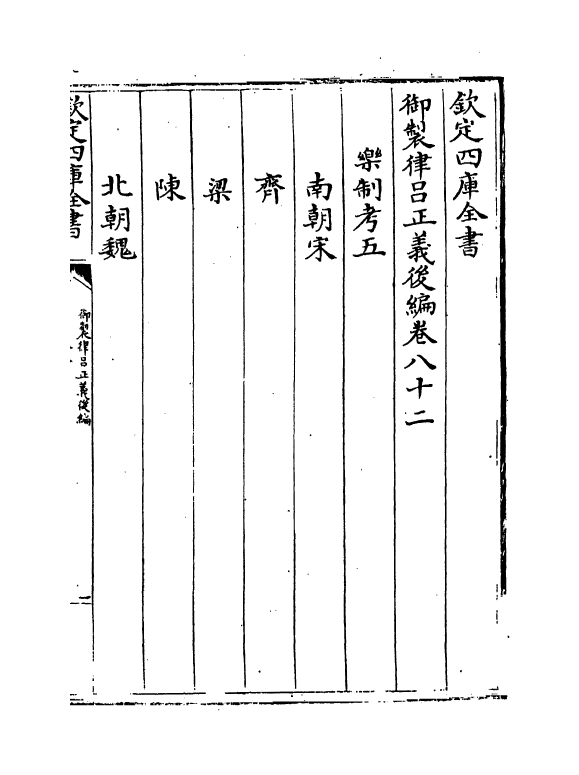 欽定四庫全書
御製律呂正義後編卷八十二
樂制考五
南朝宋
齊
梁
陳
北朝魏
欽定四庫全書
御製律呂正義後編
一